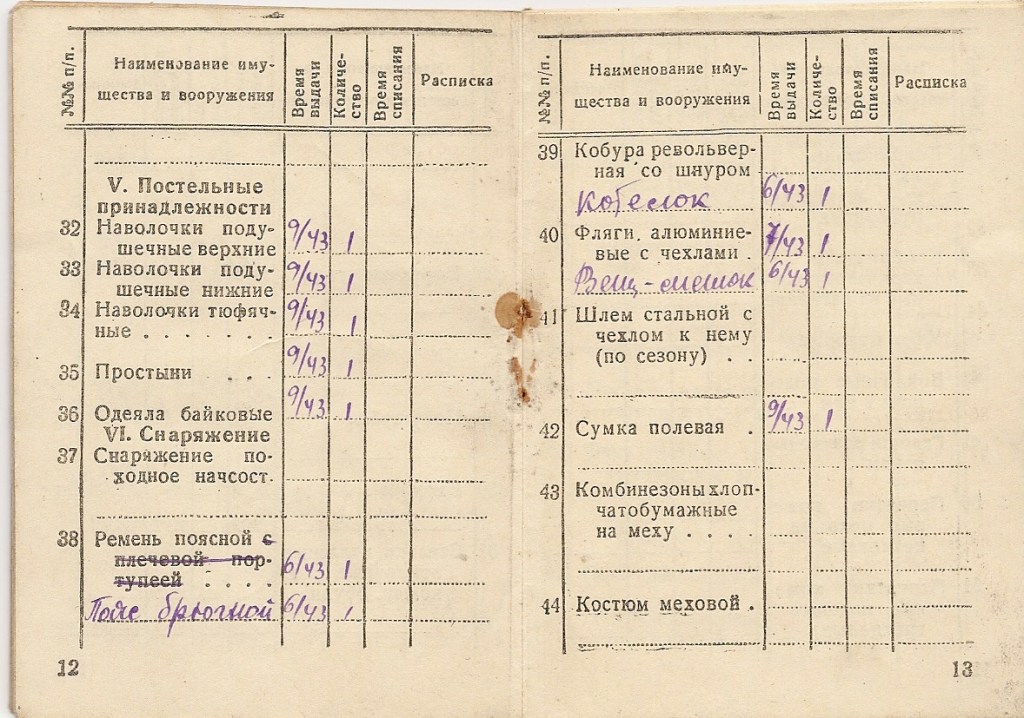 №№ п/п.
Наименование иму-
щества и вооружения
Время
выдачи
Количе-
ство
Время
списания
Расписка
V. Постельные
принадлежности
32 Наволочки поду-
шечные верхние 9/43 1
33 Наволочки поду-
шечные нижние 9/43 1
34 Наволочки тюфяч-
ные . . . . . . . 9/43 1
35 Простыни . . . 9/43 1
36 Одеяла байковые 9/43 1
VI. Снаряжение
37 Снаряжение по-
ходное начсост.
38 Ремень поясной с
плечевой пор-
тупеей . . . . 6/43 1
Пояс брючной 6/43 1
12
№№ п/п.
Наименование иму-
щества и вооружения
Время
выдачи
Количе-
ство
Время
списания
Расписка
39 Кобура револьвер-
ная со шнуром
Котелок 6/43 1
40 Фляги алюминие-
вые с чехлами . 7/43 1
Вещ-мешок 6/43 1
41 Шлем стальной с
чехлом к нему
(по сезону) . .
42 Сумка полевая . 9/43 1
43 Комбинезоны хлоп-
чатобумажные
на меху . . . .
44 Костюм меховой .
13